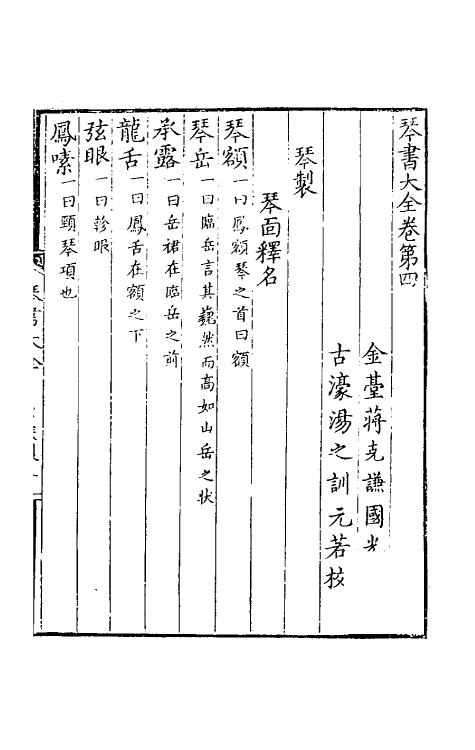 琴書大全卷第四
金臺蔣克謙國光
古濠湯之訓元若校
琴製
琴面釋名
琴額一曰鳳額琴之首曰額
琴岳一曰臨岳言其巍然而高如山岳之狀
承露一曰岳裙在臨岳之前
龍舌一曰鳳舌在額之下
弦眼一曰軫眼
鳳嗉一曰頸琴項也
琴書大全